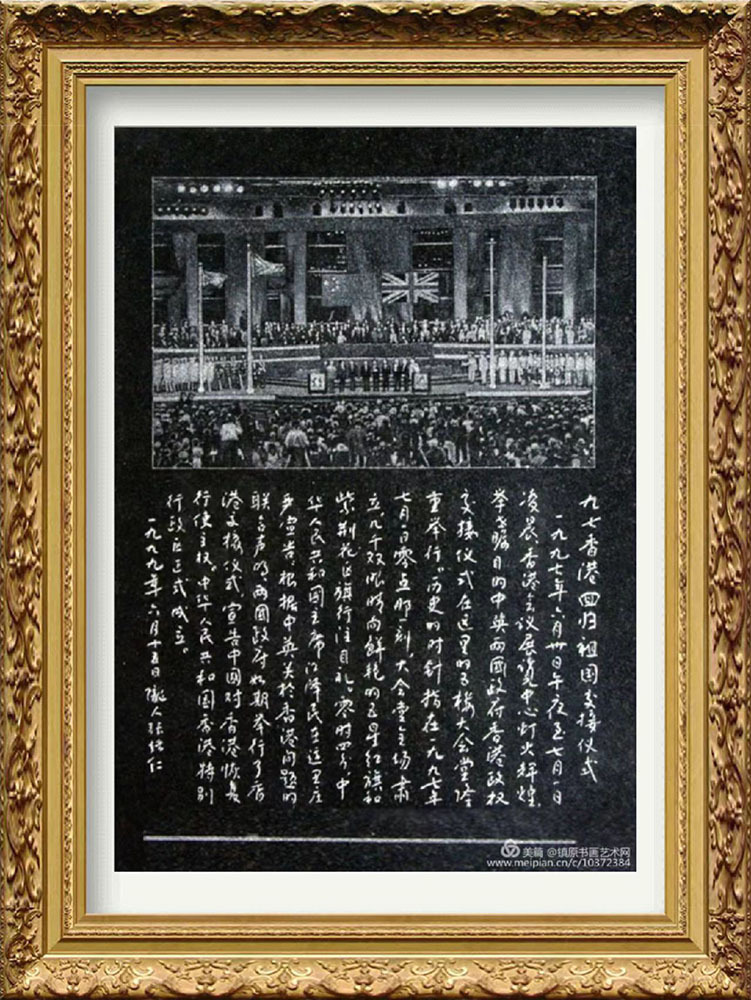 九七香港回归祖国交接仪式
一九九七年六月卅日午夜至七月一日
凌晨,香港会议展览中心灯火辉煌,
举世瞩目的中英两国政府香港政权
交接仪式在这里的五楼大会堂隆
重举行。历史的时针指在一九九七年
七月一日零点那一刻,大会堂全场肃
立,几千双眼睛向鲜艳的五星红旗和
紫荆花区旗行注目礼。零时四分,中
华人民共和国主席江泽民在这里庄
严宣告,根据中英关於香港问题的
联合声明,两国政府如期举行了香
港交接仪式,宣告中国对香港恢复
行使主权。中华人民共和国香港特别
行政区正式成立。
一九九九年六月十五日 陇人张继仁
美篇 @镇原书画艺术网
www.meipian.cn/c/10372384